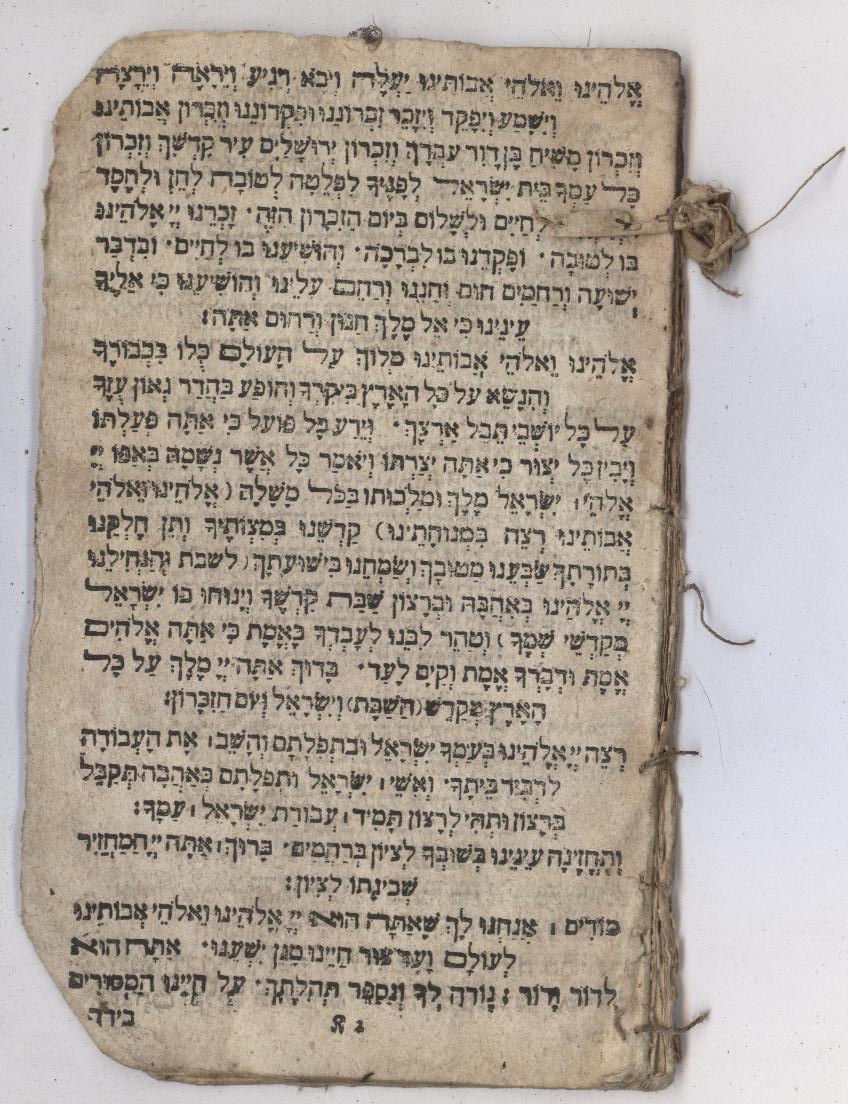 אֱלֹהֵינוּ וֵאלֹהֵי אֲבוֹתֵינוּ יַעֲלֶה וְיָבֹא וְיַגִּיעַ וְיֵרָאֶה וְיֵרָצֶה
וְיִשָּׁמַע וְיִפָּקֵד וְיִזָּכֵר זִכְרוֹנֵנוּ וּפִקְדוֹנֵנוּ וְזִכְרוֹן אֲבוֹתֵינוּ
וְזִכְרוֹן מָשִׁיחַ בֶּן דָּוִד עַבְדֶּךָ וְזִכְרוֹן יְרוּשָׁלַיִם עִיר קָדְשֶׁךָ וְזִכְרוֹן
כָּל עַמְּךָ בֵּית יִשְׂרָאֵל לְפָנֶיךָ לִפְלֵטָה לְטוֹבָה לְחֵן וּלְחֶסֶד
לְחַיִּים וּלְשָׁלוֹם בְּיוֹם הַזִּכָּרוֹן הַזֶּה׃ זָכְרֵנוּ יְיָ אֱלֹהֵינוּ
בּוֹ לְטוֹבָה׃ וּפָקְדֵנוּ בוֹ לִבְרָכָה׃ וְהוֹשִׁיעֵנוּ בוֹ לְחַיִּים׃ וּבִדְבַר
יְשׁוּעָה וְרַחֲמִים חוּס וְחָנֵּנוּ וְרַחֵם עָלֵינוּ וְהוֹשִׁיעֵנוּ כִּי אֵלֶיךָ
עֵינֵינוּ כִּי אֵל מֶלֶךְ חַנּוּן וְרַחוּם אָתָּה׃
אֱלֹהֵינוּ וֵאלֹהֵי אֲבוֹתֵינוּ מְלוֹךְ עַל הָעוֹלָם כֻּלּוֹ בִּכְבוֹדֶךָ
וְהִנָּשֵׂא עַל כָּל הָאָרֶץ בִּיקָרֶךָ וְהוֹפַע בַּהֲדַר גְּאוֹן עֻזֶּךָ
עַל כָּל יוֹשְׁבֵי תֵבֵל אַרְצֶךָ׃ וְיֵדַע כָּל פּוֹעֵל כִּי אַתָּה פְּעַלְתּוֹ
וְיָבִין כָּל יְצוּר כִּי אַתָּה יְצַרְתּוֹ וְיֹאמַר כָּל אֲשֶׁר נְשָׁמָה בְּאַפּוֹ יְיָ
אֱלֹהֵי׃ יִשְׂרָאֵל מֶלֶךְ וּמַלְכוּתוֹ בַּכֹּל מָשָׁלָה (אֱלֹהֵינוּ וֵאלֹהֵי
אֲבוֹתֵינוּ רְצֵה בִמְנוּחָתֵינוּ) קַדְּשֵׁנוּ בְּמִצְוֹתֶיךָ וְתֵן חֶלְקֵנוּ
בְּתוֹרָתֶךָ שַׂבְּעֵנוּ מִטּוּבֶךָ וְשַׂמְּחֵנוּ בִּישׁוּעָתֶךָ (לשבת וְהַנְחִילֵנוּ
יְיָ אֱלֹהֵינוּ בְּאַהֲבָה וּבְרָצוֹן שַׁבַּת קָדְשֶׁךָ וְיָנוּחוּ בוֹ יִשְׂרָאֵל
מְקַדְּשֵׁי שְׁמֶךָ) וְטַהֵר לִבֵּנוּ לְעָבְדְּךָ בֶּאֱמֶת כִּי אַתָּה אֱלֹהִים
אֱמֶת וּדְבָרְךָ אֱמֶת וְקַיָּם לָעַד׃ בָּרוּךְ אַתָּה יְיָ מֶלֶךְ עַל כָּל
הָאָרֶץ מְקַדֵּשׁ (הַשַּׁבָּת) וְיִשְׂרָאֵל וְיוֹם הַזִּכָּרוֹן׃
רְצֵה יְיָ אֱלֹהֵינוּ בְּעַמְּךָ יִשְׂרָאֵל וּבִתְפִלָּתָם וְהָשֵׁב׃ אֶת הָעֲבוֹדָה
לִדְבִיר בֵּיתֶךָ׃ וְאִשֵּׁי׃ יִשְׂרָאֵל וּתְפִלָּתָם בְּאַהֲבָה תְּקַבֵּל
בְּרָצוֹן וּתְהִי לְרָצוֹן תָּמִיד׃ עֲבוֹדַת יִשְׂרָאֵל׃ עַמֶּךָ׃
וְתֶחֱזֶינָה עֵינֵינוּ בְּשׁוּבְךָ לְצִיּוֹן בְּרַחֲמִים׃ בָּרוּךְ׃ אַתָּה יְיָ הַמַּחֲזִיר
שְׁכִינָתוֹ לְצִיּוֹן׃
מוֹדִים׃ אֲנַחְנוּ לָךְ שֶׁאַתָּה הוּא יְיָ אֱלֹהֵינוּ וֵאלֹהֵי אֲבוֹתֵינוּ
לְעוֹלָם וָעֶד צוּר חַיֵּינוּ מָגֵן יִשְׁעֵנוּ׃ אַתָּה הוּא
לְדוֹר וָדוֹר׃ נוֹדֶה לְךָ וּנְסַפֵּר תְּהִלָּתֶךָ׃ עַל חַיֵּינוּ הַמְּסוּרִים
בידך